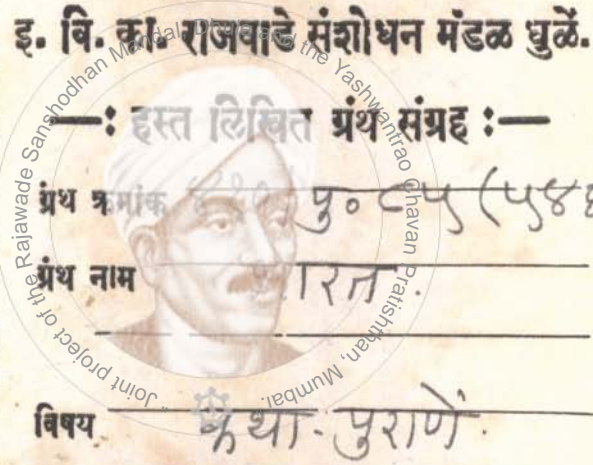 इ. वि. का. राजवाडे संशोधन मंडळ धुळें.
—: हस्त लिखित ग्रंथ संग्रह :—
ग्रंथ क्रमांक पु० ८५ (५४
ग्रंथ नाम
विषय कथा-पुराणें.
Joint project of the Rajawade Sanshodhan Mandal, Dhule and the Yashwantrao Chavan Pratishthan, Mumbai.